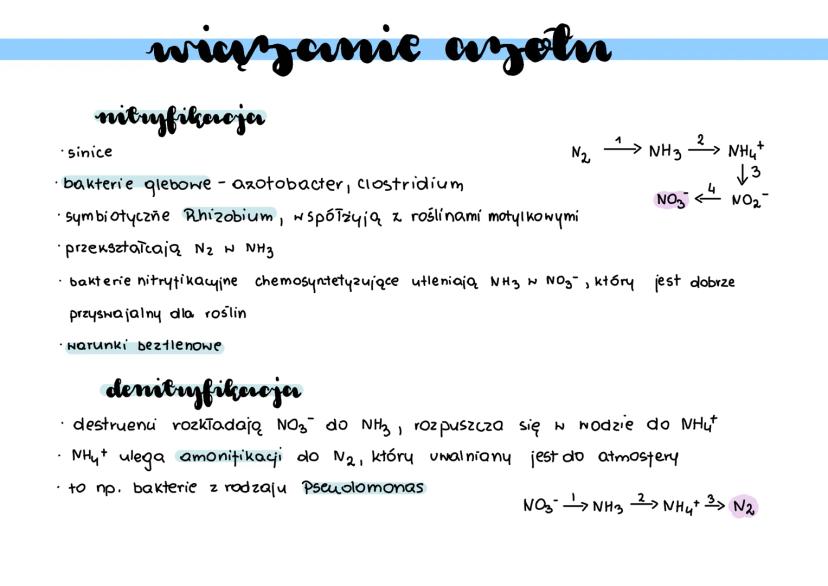 wiązanie azotu
nitryfikacja
· sinice
· bakterie glebowe - azotobacter, clostridium
· symbiotyczne Rhizobium, współżyją z roślinami motylkowymi
· przekształcają N₂ w NH₃
· bakterie nitryfikacyjne chemosyntetyzujące utleniają NH₃ w NO₃⁻, który jest dobrze
przyswajalny dla roślin
· warunki beztlenowe
N₂ 1→ NH₃ 2→ NH₄⁺
↓3
NO₃⁻ ←4 NO₂⁻
denitryfikacja
· destruenci rozkładają NO₃⁻ do NH₃, rozpuszcza się w wodzie do NH₄⁺
· NH₄⁺ ulega amonifikacji do N₂, który uwalniany jest do atmosfery
· to np. bakterie z rodzaju Pseudomonas
NO₃⁻ 1→ NH₃ 2→ NH₄⁺ 3→ N₂